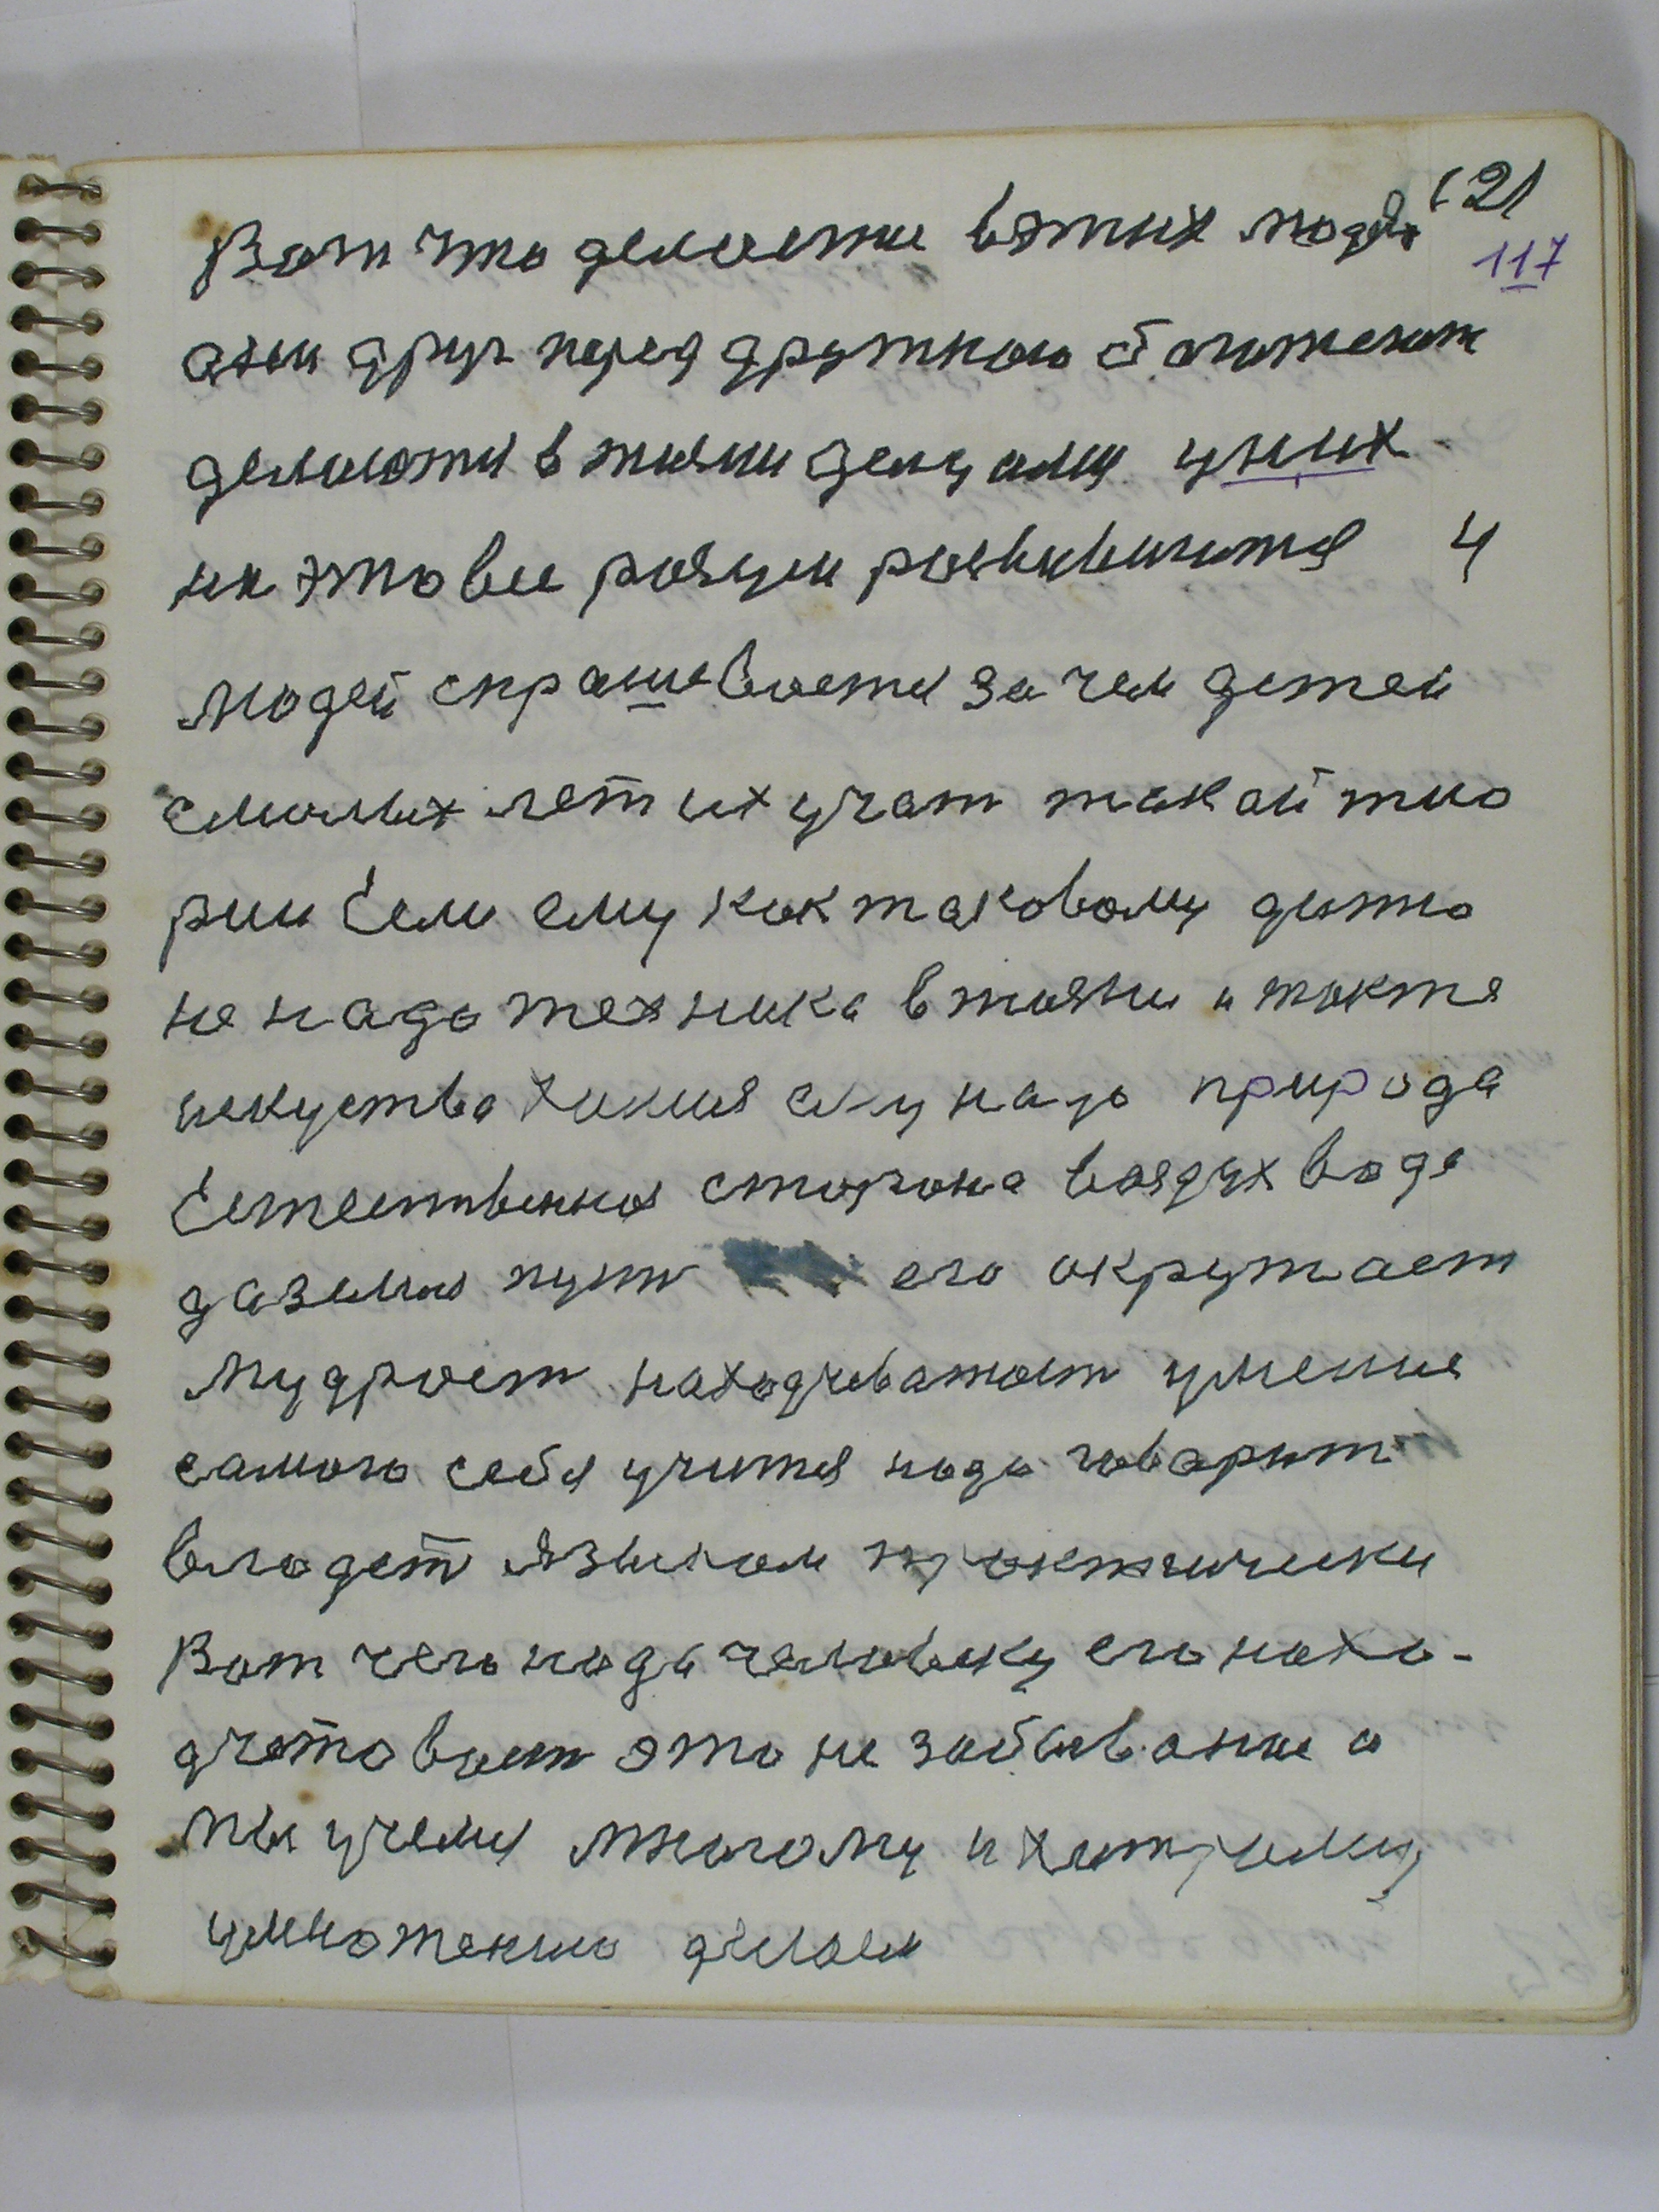 Вот что делаетце вэтих людях (21
117
ани друг перед дружкою богатеют
делаютя в жизни делцами у них
на это все розум развиваитя У
людей спрашеваетя за чем детей
смалых лет их учат такой тио
рии Если ему как таковому дитю
не надо техника в жизни и также
искуства химия ему надо природа
Естественная сторона воздух вода
да земля пусть его окружает
Мудрост находчеватост умения
самого себя учитя надо говарит
владет языком практически
Вот чего надо человеку его нахо-
дчетовост это не забывание а
мы учемя многому и хитрому
умножению делаем